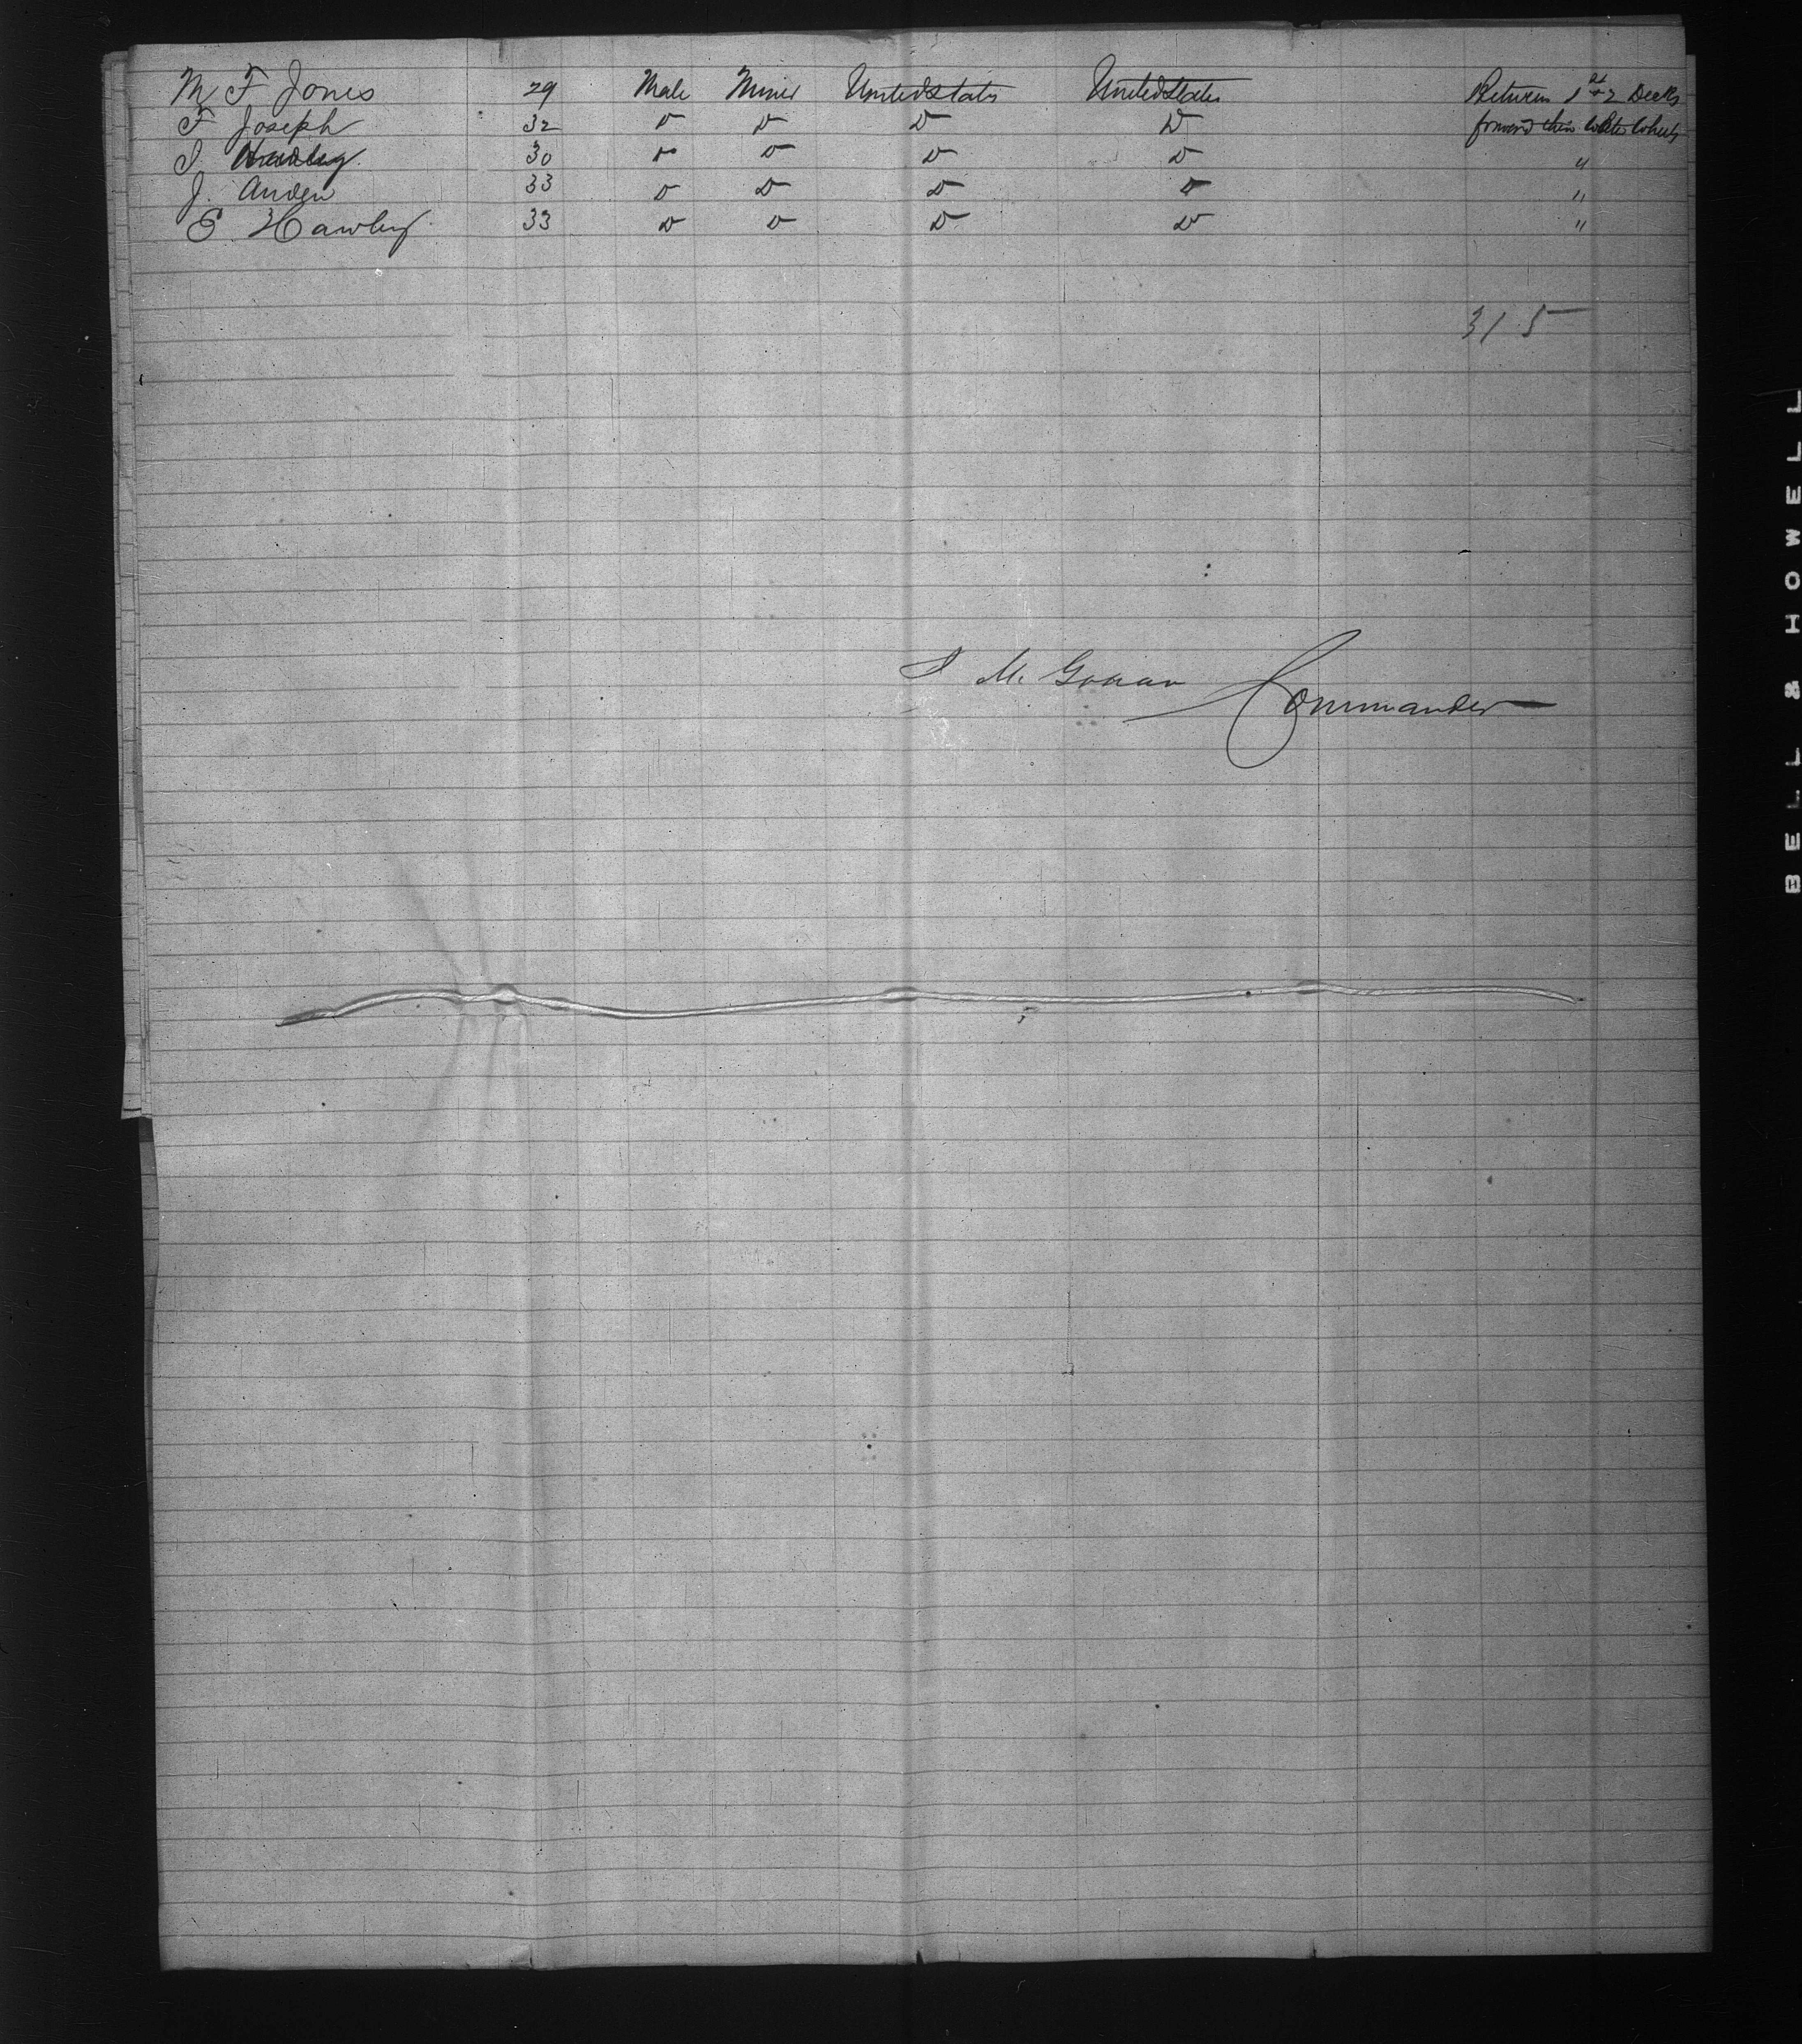 M F Jones 29 Male Miner United States United States Return 1st 2 Decks
F Joseph 32 D D D D forward their Water Wheels
J. 30 D D D D "
J. Anden 33 D D D D "
E. Hawley 33 D D D D "
315
J McGowan Commander
BELL & HOWELL